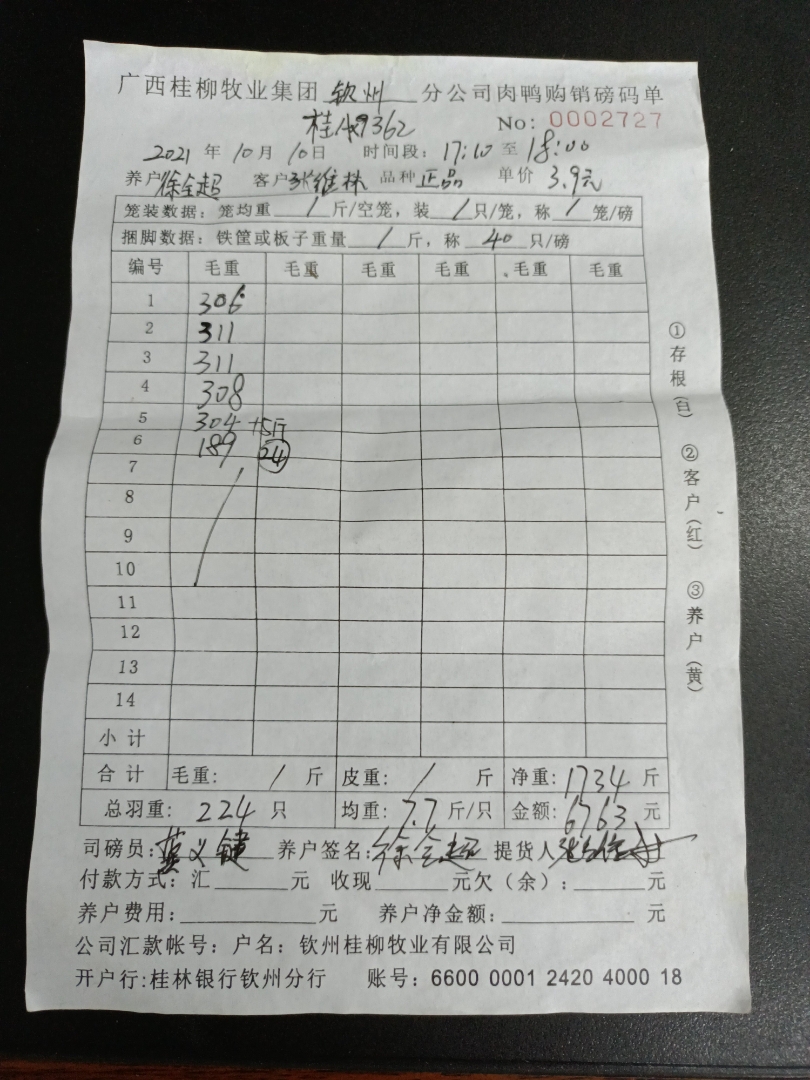 广西桂柳牧业集团 钦州 分公司肉鸭购销磅码单
No: 0002727
2021 年 10 月 10 日 时间段: 17:10 至 18:00
养户 徐全超 客户 张维林 品种 正品 单价 3.9元
笼装数据: 笼均重 / 斤/空笼, 装 / 只/笼, 称 / 笼/磅
捆脚数据: 铁筐或板子重量 / 斤, 称 40 只/磅
编号 毛重 毛重 毛重 毛重 毛重 毛重
1 306
2 311
3 311
4 308
5 304 +5斤
6 189 24
7
8
9
10
11
12
13
14
小计
合计 毛重: / 斤 皮重: / 斤 净重: 1734 斤
总羽重: 224 只 均重: 7.7 斤/只 金额: 6763 元
司磅员: 蓝义键 养户签名: 徐全超 提货人
付款方式: 汇 元 收现 元欠(余): 元
养户费用: 元 养户净金额: 元
公司汇款帐号: 户名: 钦州桂柳牧业有限公司
开户行:桂林银行钦州分行 账号: 6600 0001 2420 4000 18
①存根(白) ②客户(红) ③养户(黄)